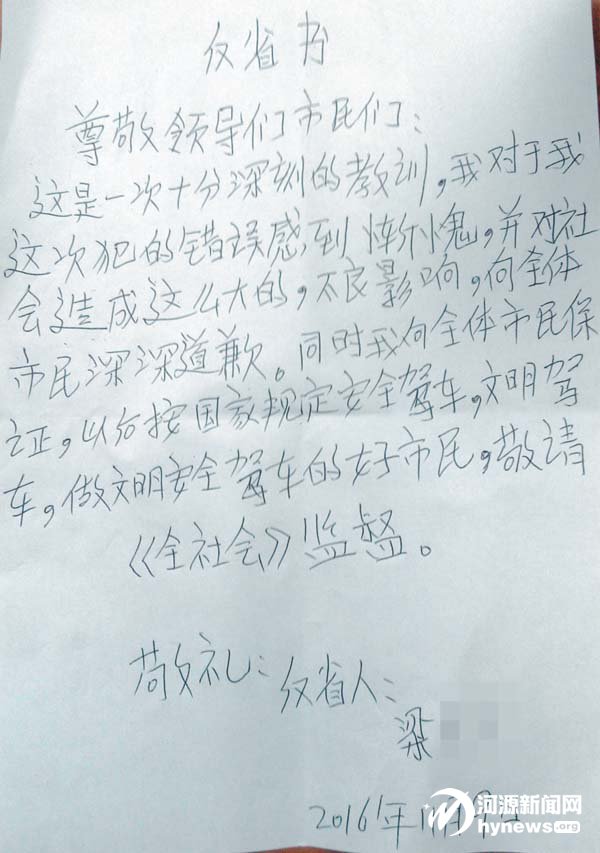 反省书
尊敬领导们市民们：
这是一次十分深刻的教训，我对于我
这次犯的错误感到惭愧，并对社
会造成这么大的，不良影响，向全体
市民深深道歉。同时我向全体市民保
证，以后按国家规定安全驾车，文明驾
车，做文明安全驾车的好市民，敬请
《全社会》监督。
敬礼：反省人：
梁
2016年
河源新闻网
hynews.org